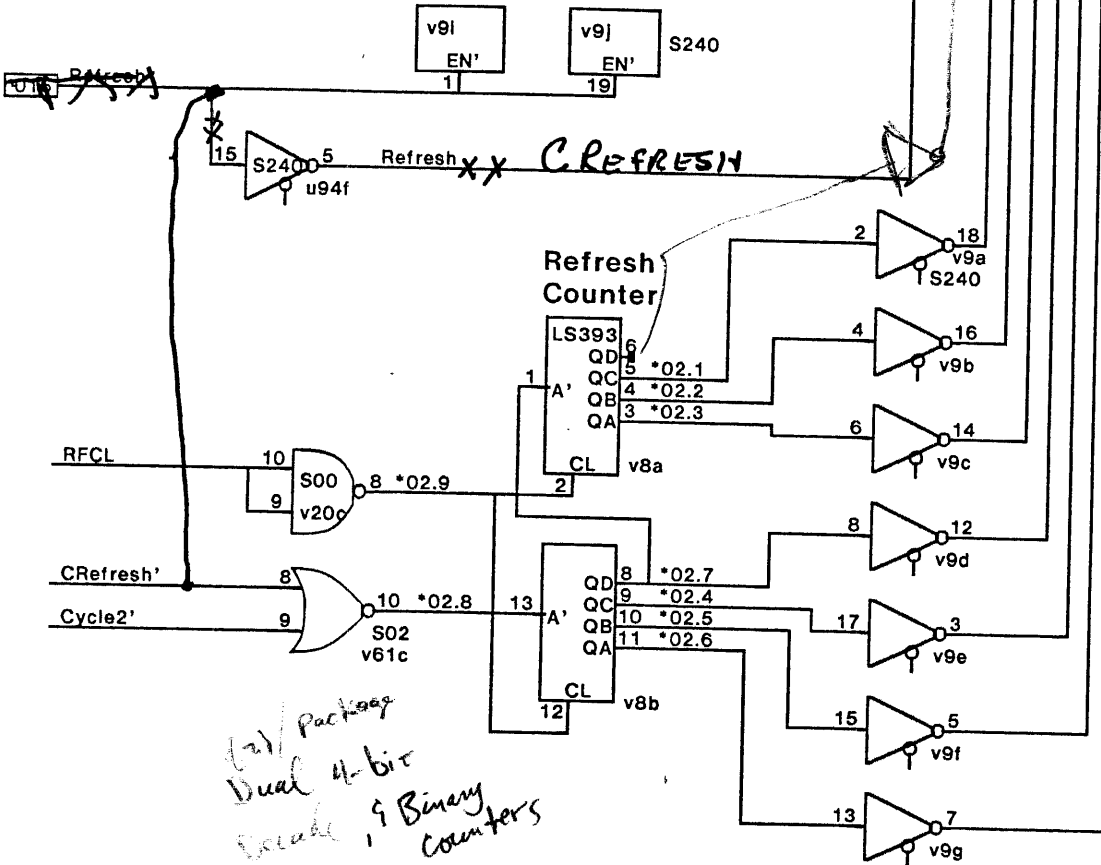 v9i
EN'
1
v9j
EN'
19
S240
Refresh
15
S240
5
u94f
Refresh
CREFRESH
2
18
v9a
S240
Refresh
Counter
LS393
QD
6
QC
5
*02.1
QB
4
*02.2
QA
3
*02.3
1
A'
CL
2
v8a
4
16
v9b
6
14
v9c
RFCL
10
9
S00
v20c
8
*02.9
8
12
v9d
CRefresh'
8
Cycle2'
9
10
*02.8
S02
v61c
13
A'
QD
8
*02.7
QC
9
*02.4
QB
10
*02.5
QA
11
*02.6
CL
12
v8b
17
3
v9e
15
5
v9f
13
7
v9g
Package
Dual 4-bit
Decade, & Binary
Counters